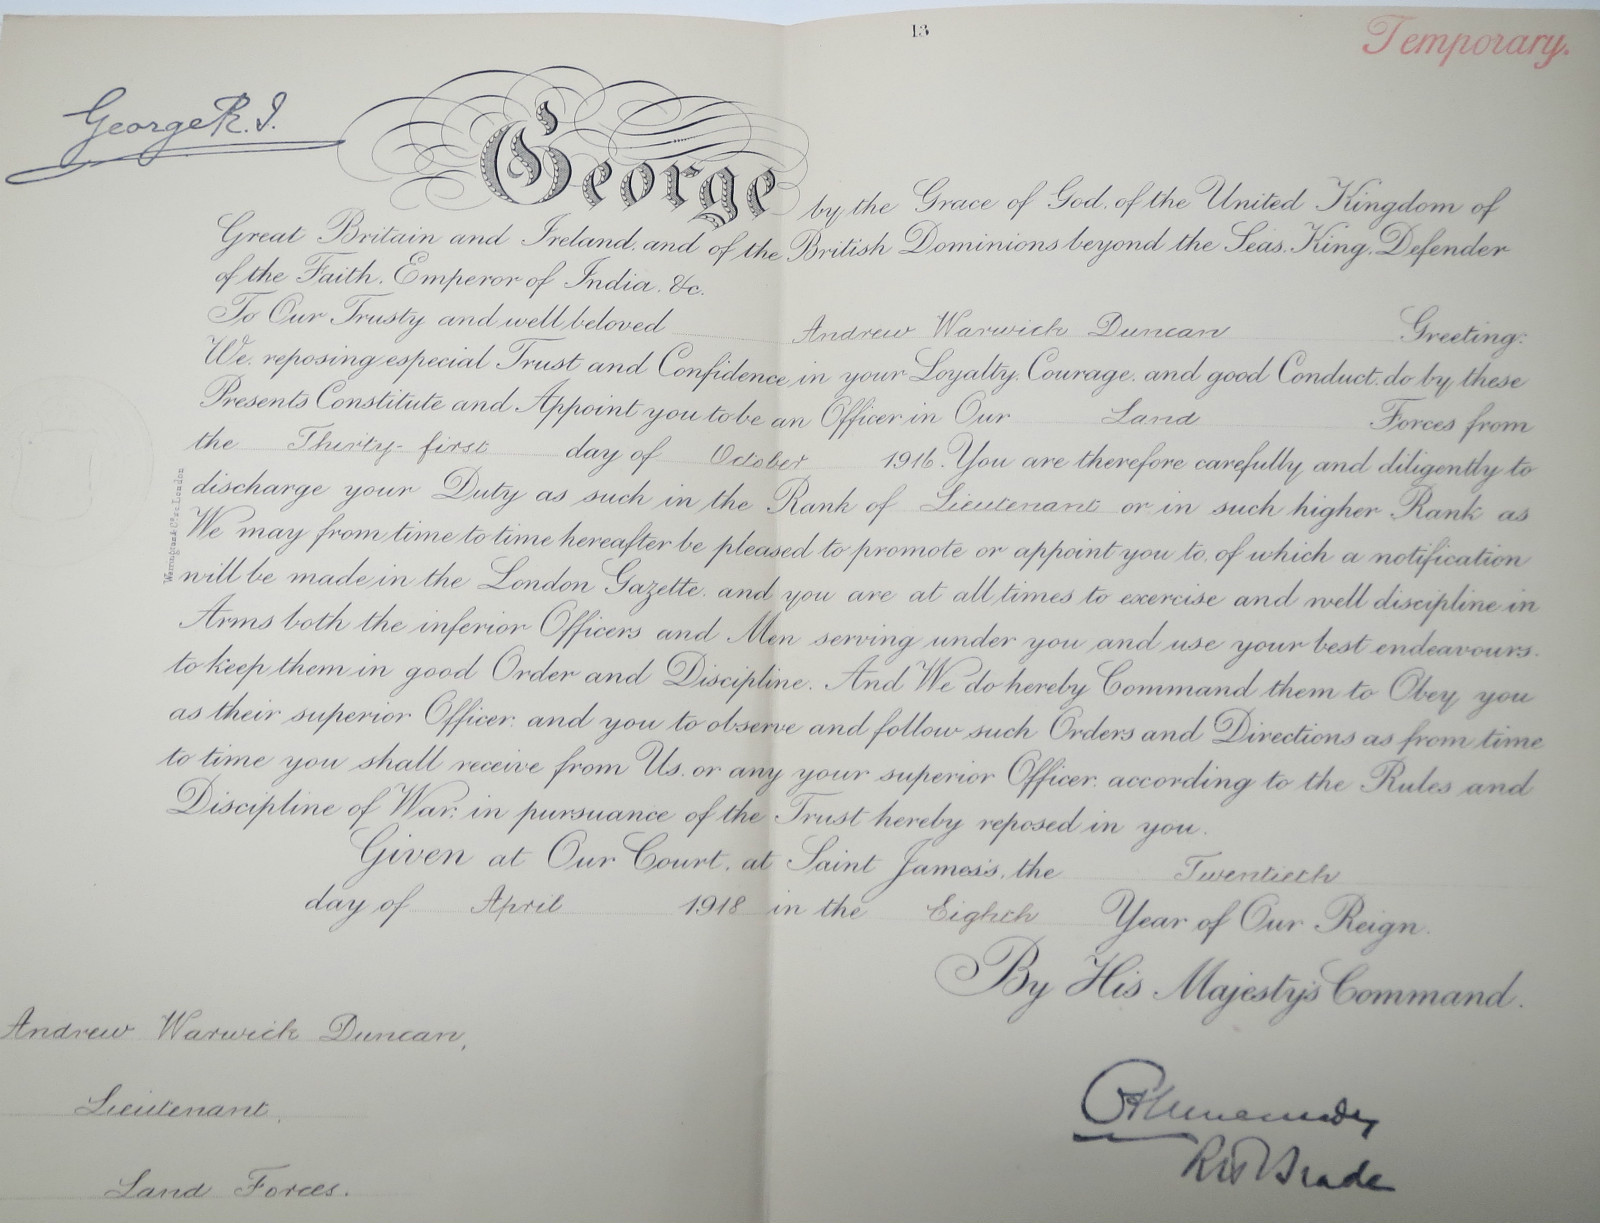 13
Temporary.
George R.I.
George by the Grace of God, of the United Kingdom of
Great Britain and Ireland, and of the British Dominions beyond the Seas, King, Defender
of the Faith, Emperor of India, &c.
To Our Trusty and well beloved Andrew Warwick Duncan Greeting:
We, reposing especial Trust and Confidence in your Loyalty, Courage, and good Conduct, do by these
Presents Constitute and Appoint you to be an Officer in Our Land Forces from
the Thirty-first day of October 1916. You are therefore carefully and diligently to
discharge your Duty as such in the Rank of Lieutenant or in such higher Rank as
We may from time to time hereafter be pleased to promote or appoint you to, of which a notification
will be made in the London Gazette, and you are at all times to exercise and well discipline in
Arms both the inferior Officers and Men serving under you and use your best endeavours
to keep them in good Order and Discipline. And We do hereby Command them to Obey you
as their superior Officer, and you to observe and follow such Orders and Directions as from time
to time you shall receive from Us, or any your superior Officer, according to the Rules and
Discipline of War, in pursuance of the Trust hereby reposed in you.
Given at Our Court, at Saint James's, the Twentieth
day of April 1918 in the Eighth Year of Our Reign.
By His Majesty's Command.
Andrew Warwick Duncan,
Lieutenant,
Land Forces.
Brade